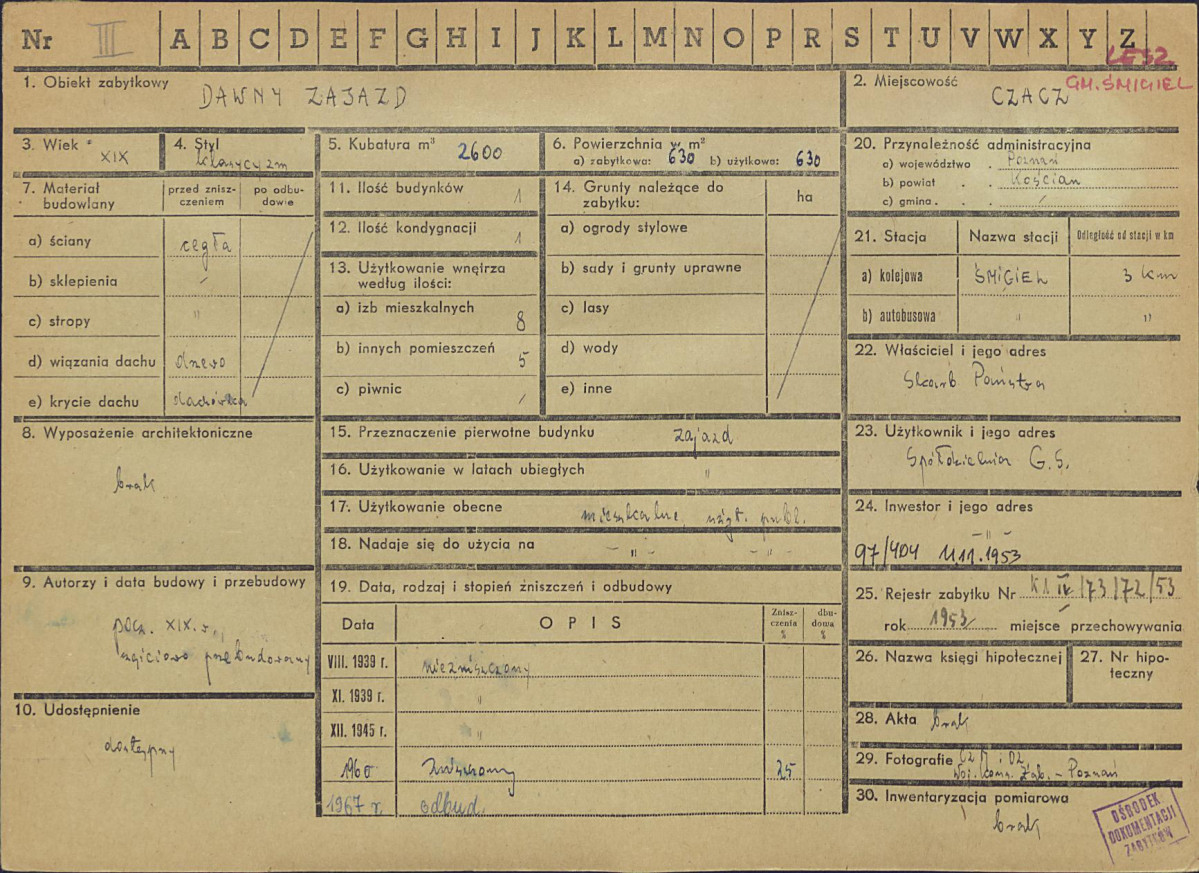 Nr III A B C D E F G H I J K L M N O P R S T U V W X Y Z
LESZ.
GM. ŚMIGIEL
1. Obiekt zabytkowy
DAWNY ZAJAZD
2. Miejscowość
CZACZ
3. Wiek XIX
4. Styl klasycyzm
5. Kubatura m³ 2600
6. Powierzchnia w m²
a) zabytkowa: 630 b) użytkowa: 630
7. Materiał budowlany
przed zniszczeniem
po odbudowie
a) ściany cegła
b) sklepienia /
c) stropy "
d) wiązania dachu drewo
e) krycie dachu dachówka
8. Wyposażenie architektoniczne
brak
9. Autorzy i data budowy i przebudowy
pocz. XIX w.,
częściowo przebudowany
10. Udostępnienie
dostępny
11. Ilość budynków 1
12. Ilość kondygnacji 1
13. Użytkowanie wnętrza
według ilości:
a) izb mieszkalnych 8
b) innych pomieszczeń 5
c) piwnic /
14. Grunty należące do
zabytku:
ha
a) ogrody stylowe
b) sady i grunty uprawne
c) lasy
d) wody
e) inne
15. Przeznaczenie pierwotne budynku zajazd
16. Użytkowanie w latach ubiegłych "
17. Użytkowanie obecne mieszkalne, użyt. publ.
18. Nadaje się do użycia na – " – – " –
19. Data, rodzaj i stopień zniszczeń i odbudowy
Data OPIS Zniszczenia % dbudowa %
VIII. 1939 r. niezniszczony
XI. 1939 r. "
XII. 1945 r. "
1960 zniszczony 25
1967 r. odbud.
20. Przynależność administracyjna
a) województwo . Poznań
b) powiat . . Kościan
c) gmina . . /
21. Stacja Nazwa stacji Odległość od stacji w km
a) kolejowa ŚMIGIEL 3 km
b) autobusowa " "
22. Właściciel i jego adres
Skarb Państwa
23. Użytkownik i jego adres
Spółdzielnia G.S.
24. Inwestor i jego adres
– " –
97/404 11.11.1953
25. Rejestr zabytku Nr KL IV/73/72/53
rok 1953 miejsce przechowywania
26. Nazwa księgi hipotecznej
27. Nr hipoteczny
28. Akta brak
29. Fotografie
Woj. Kons. Zab. – Poznań
30. Inwentaryzacja pomiarowa
brak
OŚRODEK
DOKUMENTACJI
ZABYTKÓW